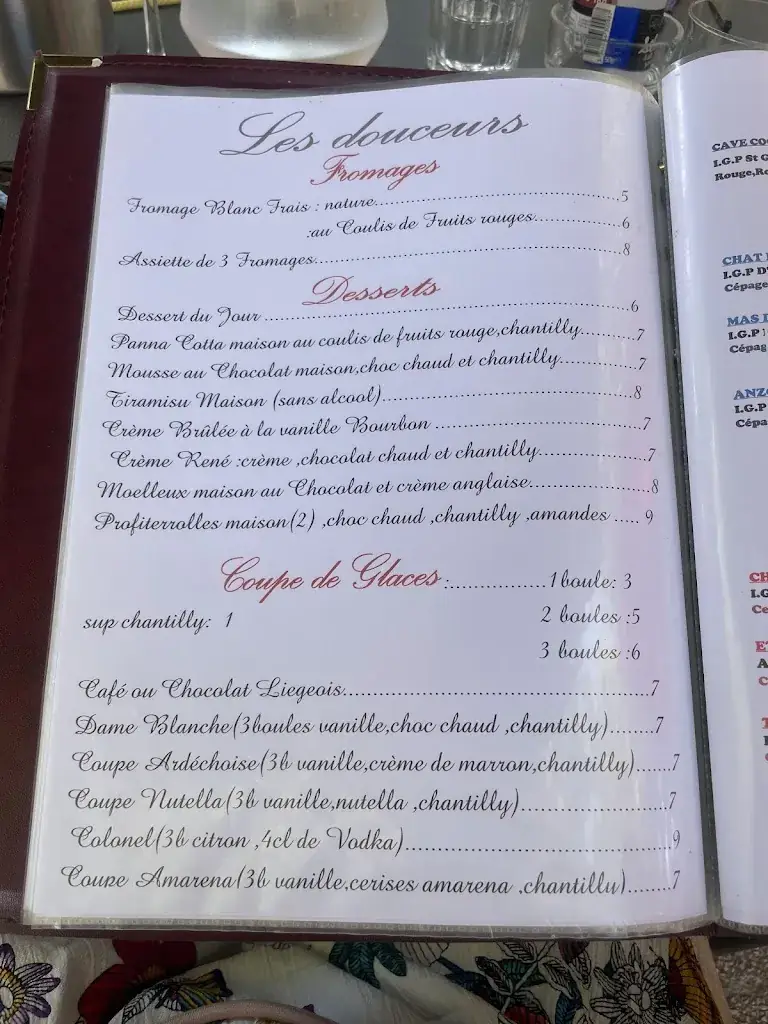 Les douceurs
Fromages
Fromage Blanc Frais : nature....................5
:au Coulis de Fruits rouges..............6
Assiette de 3 Fromages....................8
Desserts
Dessert du Jour ....................6
Panna Cotta maison au coulis de fruits rouge,chantilly..........7
Mousse au Chocolat maison,choc chaud et chantilly.............7
Tiramisu Maison (sans alcool)....................8
Crème Brûlée à la vanille Bourbon ....................7
Crème René :crème ,chocolat chaud et chantilly..................7
Moelleux maison au Chocolat et crème anglaise....................8
Profiterrolles maison(2) ,choc chaud ,chantilly ,amandes ..... 9
Coupe de Glaces :................1 boule: 3
sup chantilly: 1
2 boules :5
3 boules :6
Café ou Chocolat Liegeois....................7
Dame Blanche(3boules vanille,choc chaud ,chantilly)........7
Coupe Ardéchoise(3b vanille,crème de marron,chantilly)......7
Coupe Nutella(3b vanille,nutella ,chantilly)....................7
Colonel(3b citron ,4cl de Vodka)....................9
Coupe Amarena(3b vanille,cerises amarena ,chantilly)........7
CAVE CO
I.G.P St G
Rouge,Ro
CHAT
I.G.P D'
Cépage
MAS
I.G.P
Cépag
ANZ
I.G.P
Cépa
CH
I.G
Ce